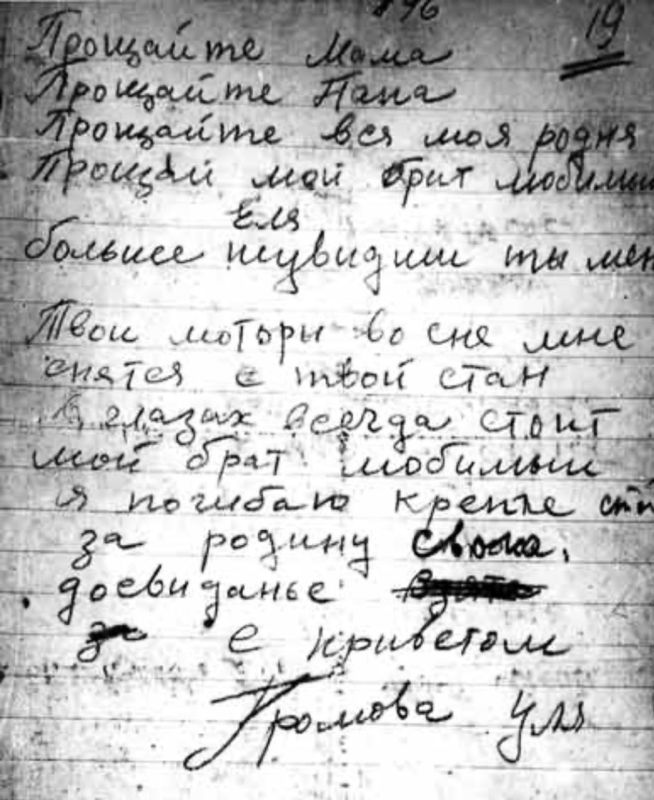 196
19
Прощайте Мама
Прощайте Папа
Прощайте вся моя родня
Прощай мой брат любимый
Еля
больше неувидиш ты мен
Твои моторы во сне мне
снятся е твой стан
в глазах всегда стоит
мой брат любимый
я погибаю крепче сто
за родину свою.
досвиданье
С приветом
Громова Уля